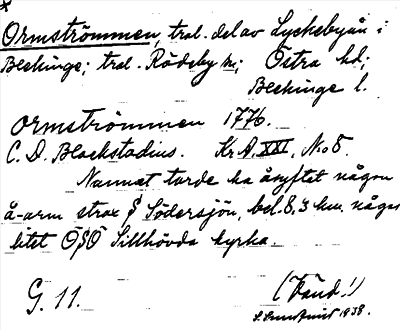 Ormströmmen, tral. del av Lyckebyån i
Blekinge; tral. Rödeby sn; Östra hd;
Blekinge l.
Ormströmmen 1776.
C. D. Blackstadius. Kr A. XXI, No 8.
Namnet torde ha åsyftat någon
å-arm strax § Södersjön, bel. 8,3 km. något
litet Ö§Ö Sillhövda kyrka.
G. 11.
(Känd!)
1938.